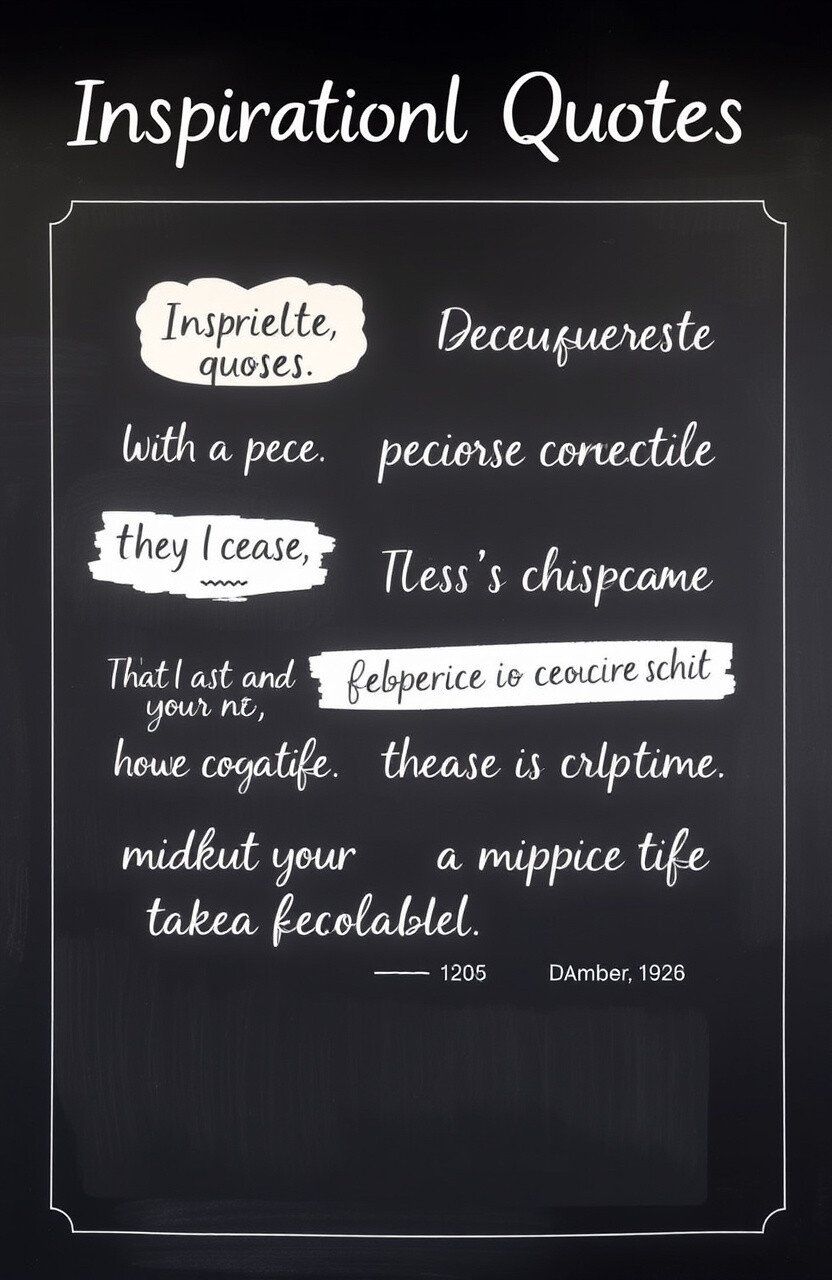 Inspirationl Quotes
Insprielte,
quoses.
Deceufuereste
With a pece.
peciorse conectile
they I cease,
Tless's chispcame
That I ast and
your nt,
febperice io ceoucire schit
howe cogatife.
thease is crlptime.
midkut your
a mippice tife
takea fecolablel.
— 1205
DAmber, 1926